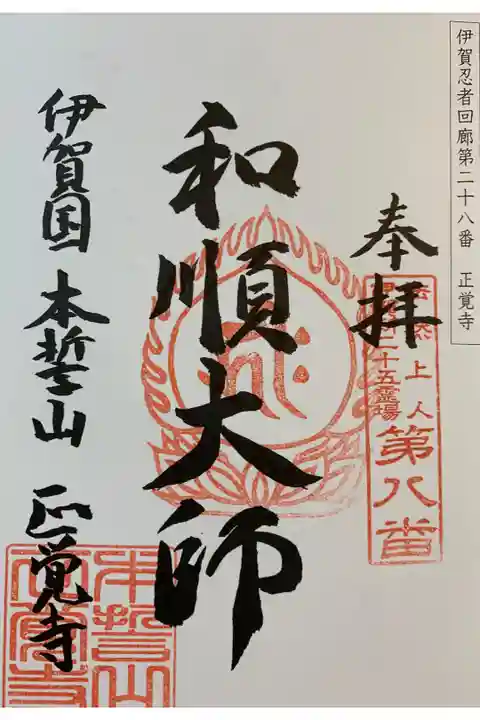 伊賀忍者回廊第二十八番 正覚寺
奉拝
法然上人
二十五霊場
第八番
和順大師
伊賀国 本誓山 正覚寺
本誓山
正覚寺